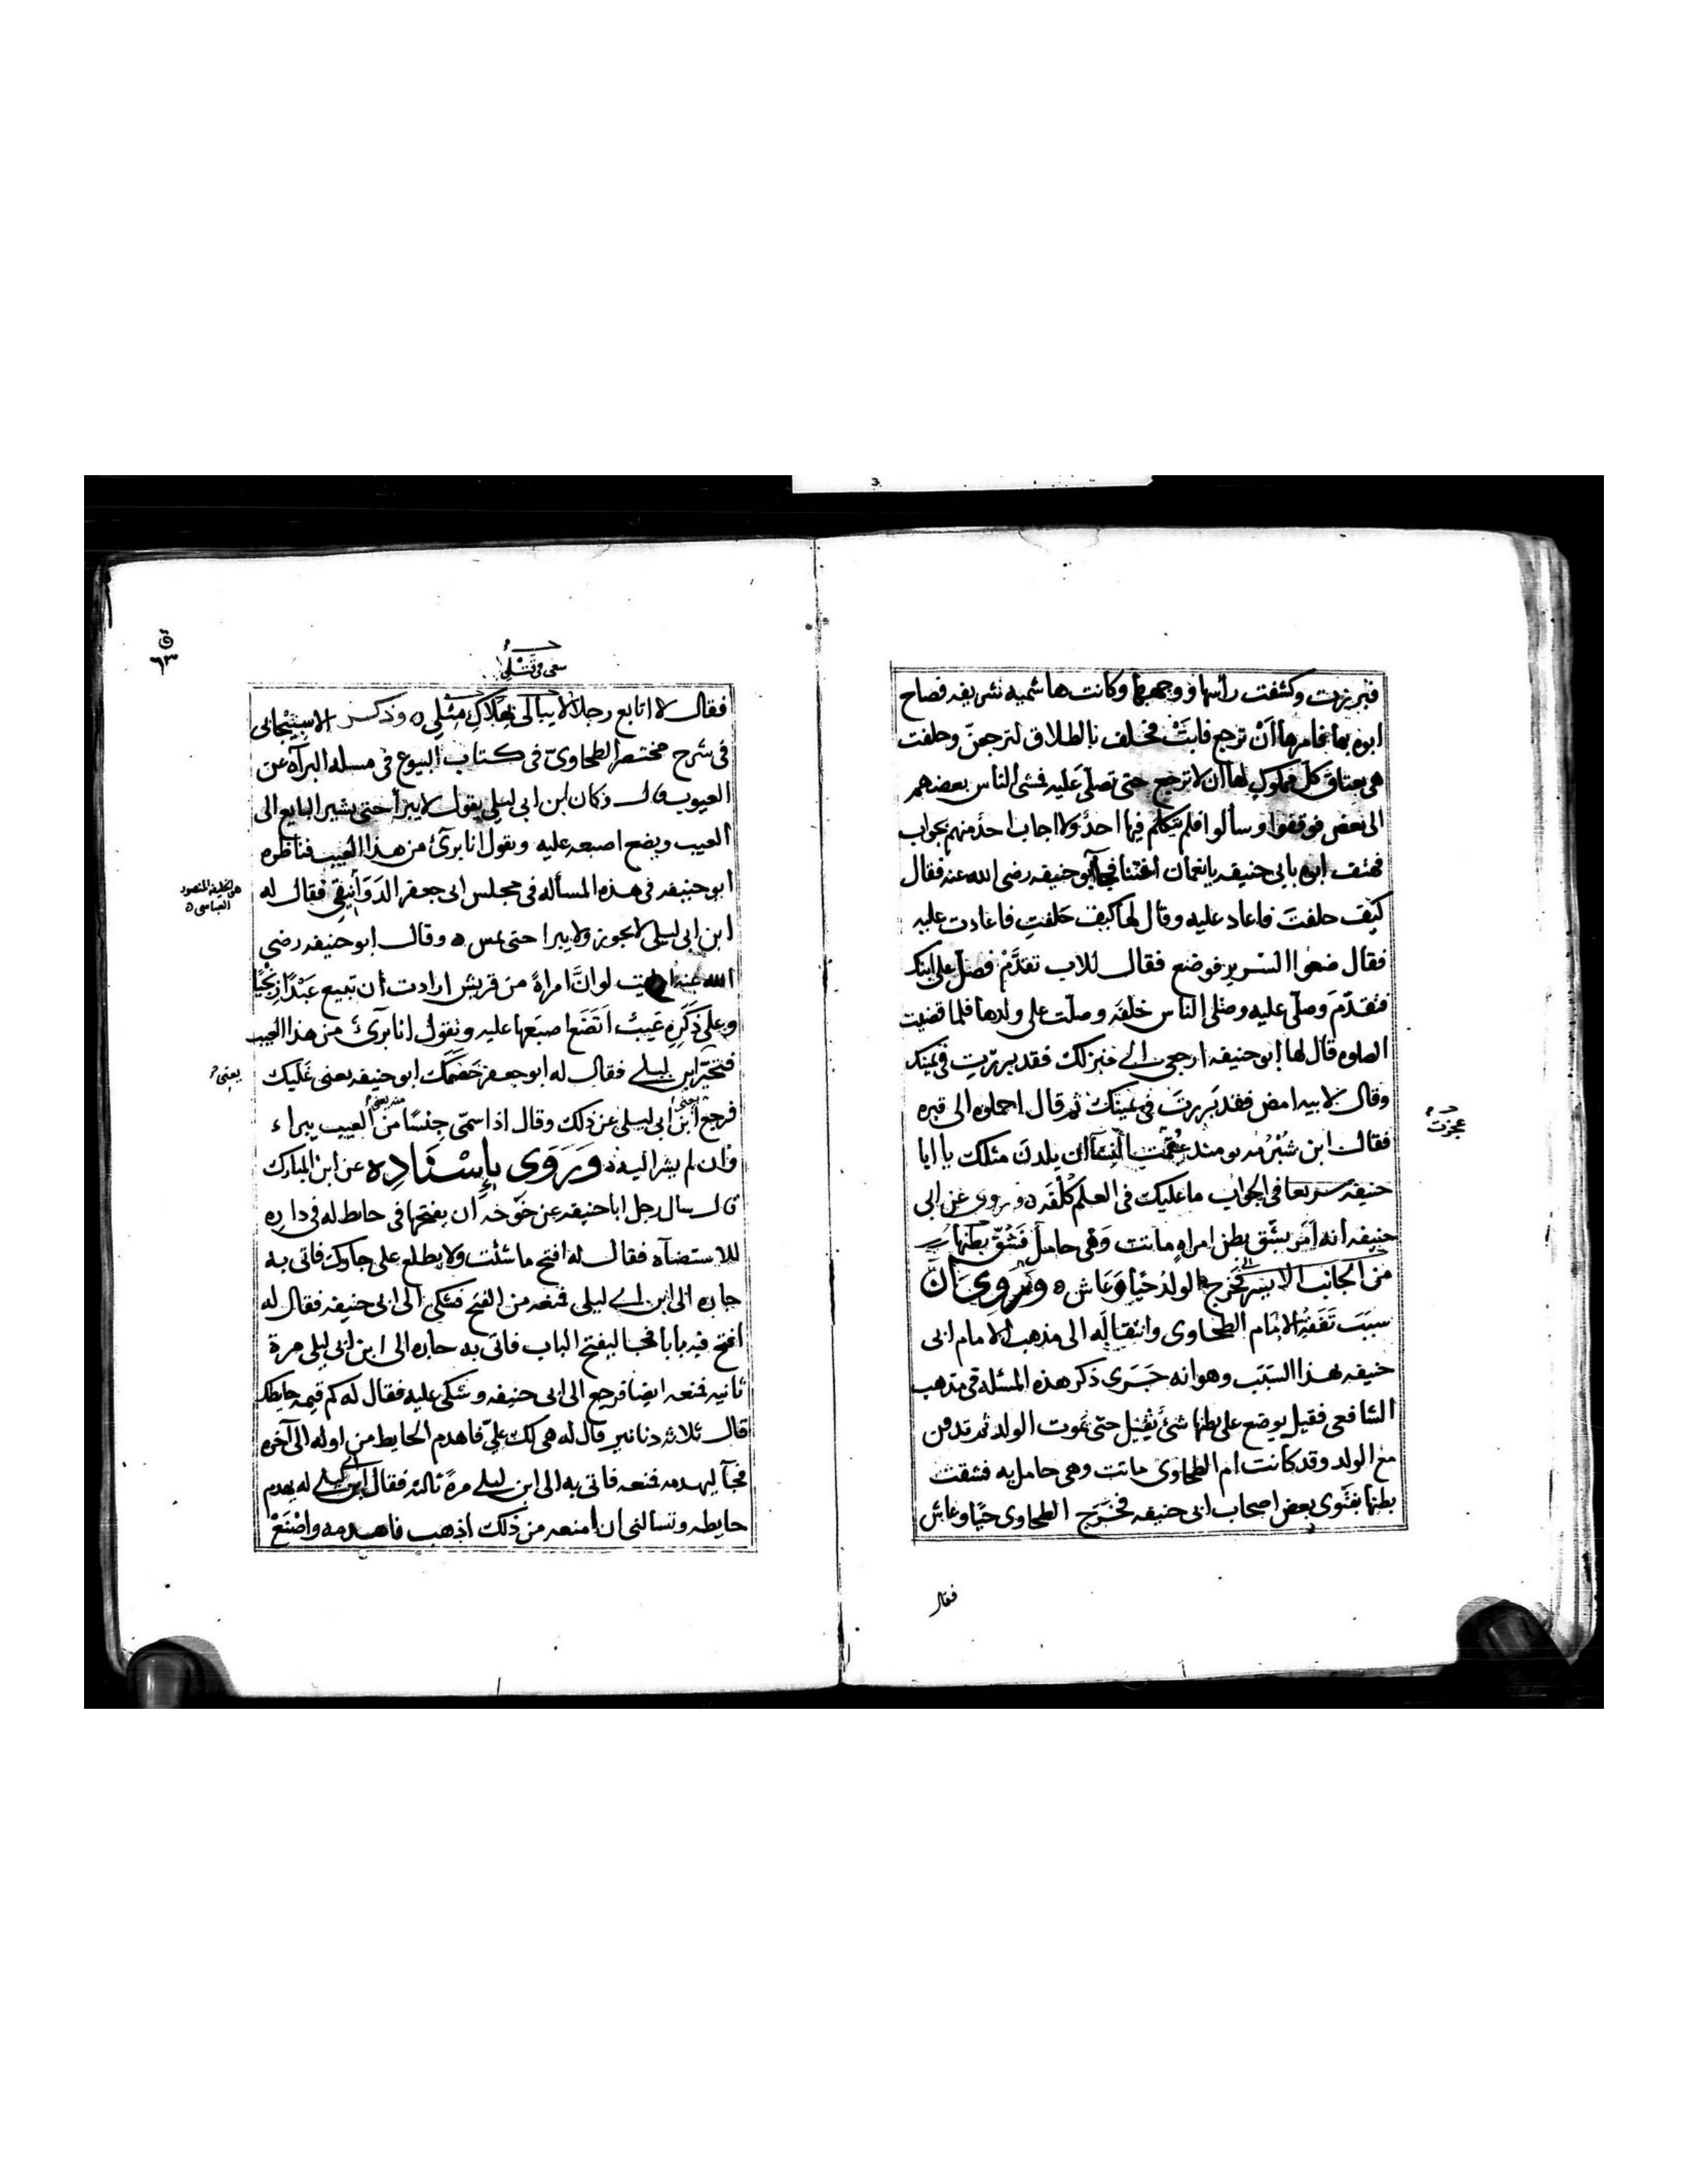 فبرزت وكشفت رأسها ووجهها وكانت هاشميه شريفه فصاح
ابوه بها فامرها أن ترجع فابت فحلف بالطلاق لترجعن وحلفت
هى بعتاق كل مملوك لها ان لا ترجع حتى تصلى عليه فمشى الناس بعضهم
الى بعض فوقفوا وسألوا فلم يتكلم فيها احد ولا اجاب احد منهم بجواب
فهتف ابوه بابى حنيفه يا نعمان اغثنا فجآ ابو حنيفه رضى الله عنه فقال
كيف حلفت فاعاد عليه وقال لها كيف حلفت فاعادت عليه
فقال ضعوا السرير فوضع فقال للاب تقدم فصل على ابنك
فتقدم وصلى عليه وصلى الناس خلفه وصلت على ولدها فلما قضيت
الصلوه قال لها ابو حنيفه ارجعى الى منزلك فقد بررت فى يمينك
وقال لابيه امض فقد بررت فى يمينك ثم قال احملوه الى قبره
فقال ابن شبرمه يومئذ عقمت النسآ ان يلدن مثلك يا ابا
حنيفه سريعا فى الجواب ما عليك فى العلم كلفه ه وروى عن ابى
حنيفه انه امر بشق بطن امراه ماتت وهى حامل فشق بطنها
من الجانب الايسر فخرج الولد حيا وعاش ه وروى ان
سبب تفقه الامام الطحاوى وانتقاله الى مذهب الامام ابى
حنيفه بهذا السبب وهو انه جرى ذكر هذه المسئله فى مذهب
الشافعى فقيل يوضع على بطنها شئ ثقيل حتى يموت الولد ثم تدفن
مع الولد وقد كانت ام الطحاوى ماتت وهى حامل به فشقت
بطنها بفتوى بعض اصحاب ابى حنيفه فخرج الطحاوى حيا وعاش
عجزت
فقال
ق
٦٣
سعى فى قتلى
فقال لا اتابع رجلا لا يبالى بهلاك مثلى ه وذكر الاسبيجابى
فى شرح مختصر الطحاوى فى كتاب البيوع فى مسله البرآه عن
العيوب قال وكان ابن ابى ليلى يقول لا يبرأ حتى يشير البايع الى
العيب ويضع اصبعه عليه ويقول انا برئ من هذا العيب فناظره
ابو حنيفه فى هذه المسأله فى مجلس ابى جعفر الدوانيقى فقال له
ابن ابى ليلى لا يجوز ولا يبرا حتى يمس ه وقال ابو حنيفه رضى
الله عنه ارايت لو ان امراة من قريش ارادت ان تبيع عبدا زنجيا
وعلى ذكره عيب اتضع اصبعها عليه وتقول انا برئ من هذا العيب
فتحير ابن ليلى فقال له ابو جعفر خصمك ابو حنيفه يعنى غلبك
فرجع ابن ابى ليلى عن ذلك وقال اذا سمى جنسا من العيب يبراء
وان لم يشر اليه ه وروى بإسناده عن ابن المبارك
قال سال رجل ابا حنيفه عن خوخه ان يفتحها فى حايط له فى داره
للاستضآه فقال له افتح ما شئت ولا يطلع على جارك فاتى به
جاره الى ابن ابى ليلى فمنعه من الفتح فشكى الى ابى حنيفه فقال له
افتح فيه بابا فجا ليفتح الباب فاتى به جاره الى ابن ابى ليلى مرة
ثانيه فمنعه ايضا فرجع الى ابى حنيفه وشكى عليه فقال له كم قيمه حايطك
قال ثلاثه دنانير قال له هى لك على فاهدم الحايط من اوله الى آخره
فجآ ليهدمه فمنعه فاتى به الى ابن ليلى مرة ثالثه فقال ابن ابى ليلى له يهدم
حايطه وتسالنى ان امنعه من ذلك اذهب فاهدمه واصنع
هو الخليفه المنصور
العباسى ه
يعنى